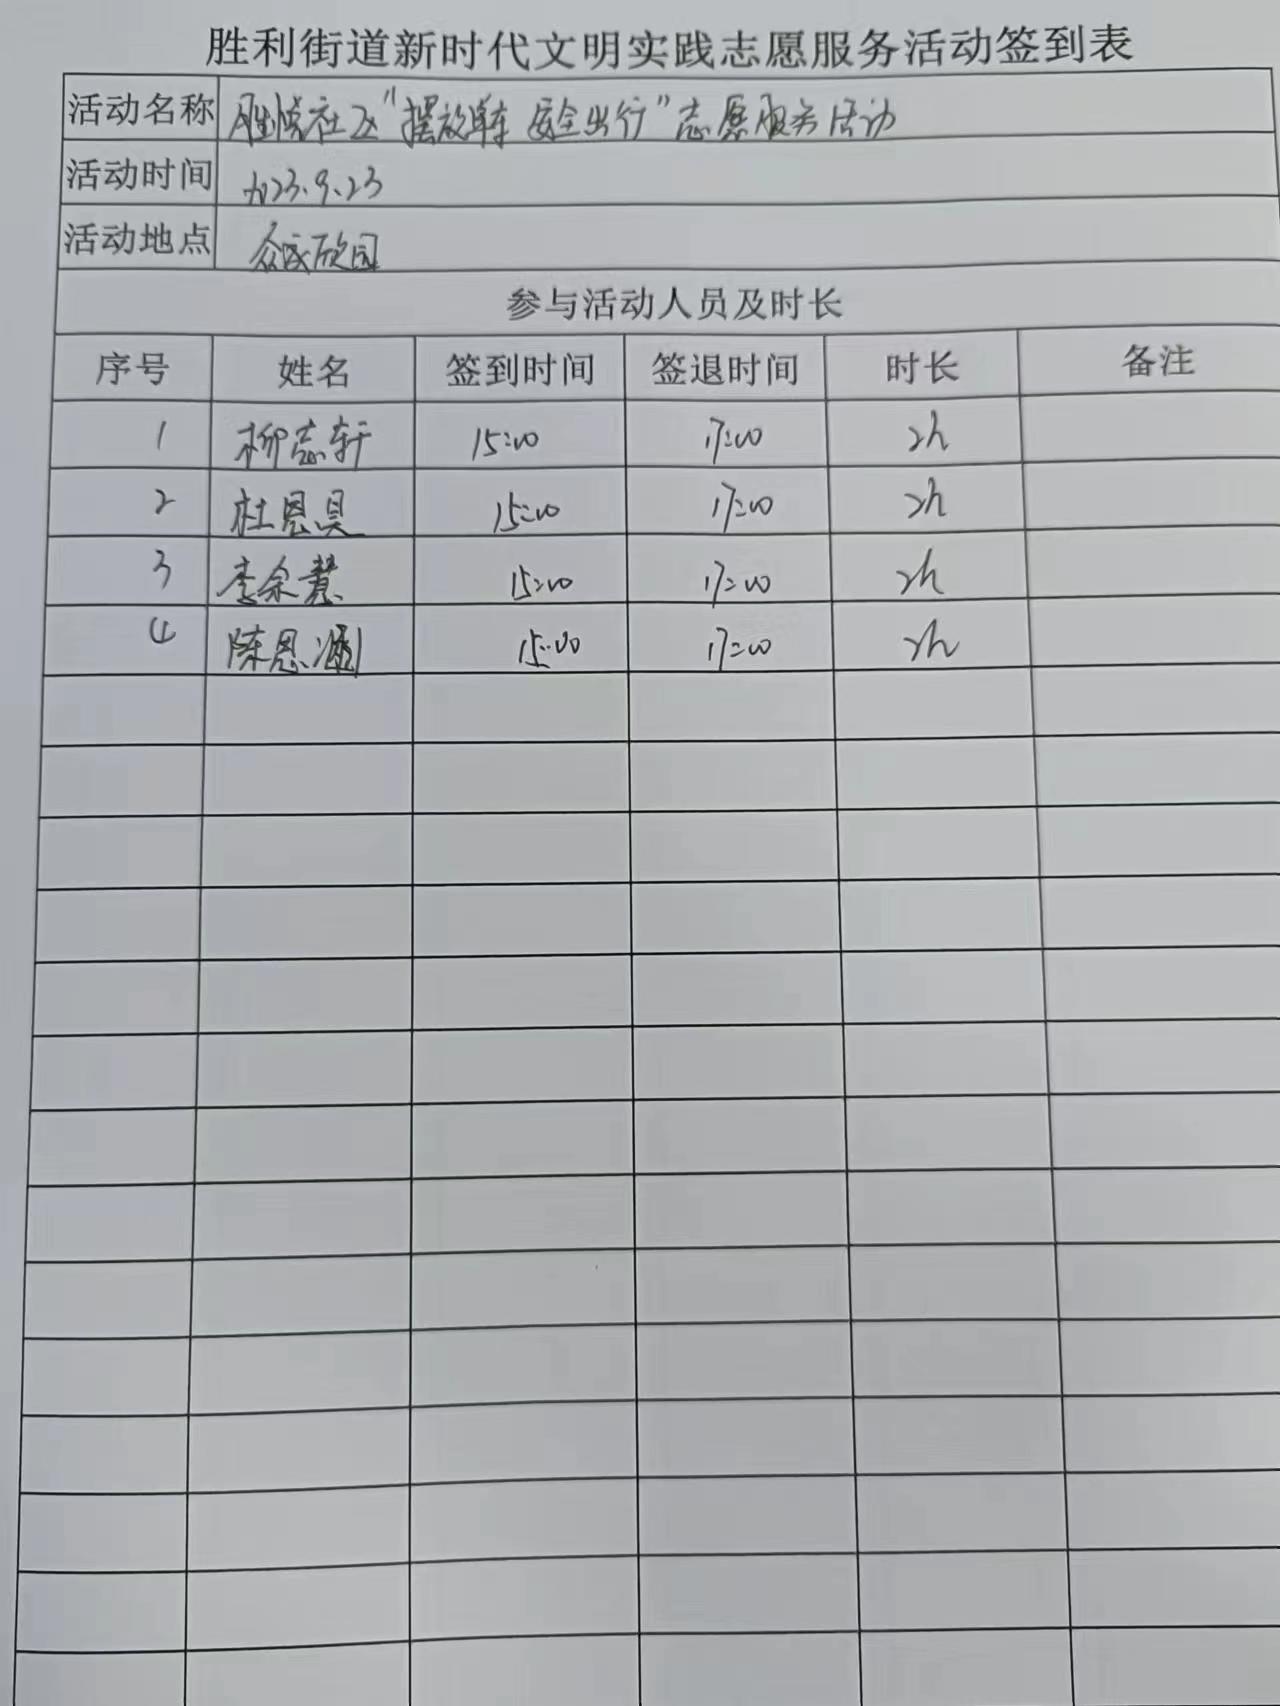 胜利街道新时代文明实践志愿服务活动签到表
活动名称 胜悦社区“摆放单车 安全出行”志愿服务活动
活动时间 2023.9.23
活动地点 众成欣园
参与活动人员及时长
序号 姓名 签到时间 签退时间 时长 备注
1 柳志轩 15:00 17:00 2h
2 杜恩昊 15:00 17:00 2h
3 李余慧 15:00 17:00 2h
4 陈恩涵 15:00 17:00 2h